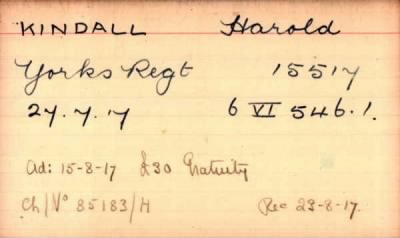 KINDALL Harold
Yorks Regt 15517
27.7.17 6 VI 546.1.
Ad: 15-8-17 £30 Gratuity
Ch/Vº 85183/H Rec 23-8-17.